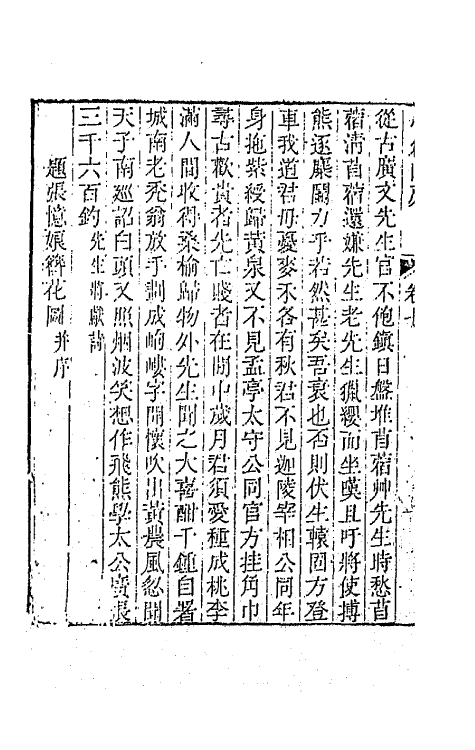 卷七
從古廣文先生官不飽鎮日盤堆苜蓿艸先生時愁苜
蓿淸苜蓿還嫌先生老先生獵纓而坐嘆且吁將使搏
熊逐麋鬬力乎若然甚矣吾衰也否則伏生轅固方登
車我道君毋憂麥禾各有秋君不見迦陵宰相公同年
身抱紫綬歸黃泉又不見孟亭太守公同官方挂角巾
尋古歡貴者先亡賤者在閒中歲月君須愛種成桃李
滿人間收得桑榆歸物外先生聞之大喜酣千鍾自署
城南老禿翁放手劃成岣嶁字開懷吹出黃農風忽聞
天子南廵詔白頭又照烟波笑想作飛熊學太公廣張
三千六百釣先生將獻詩
題張憶娘簪花圖并序